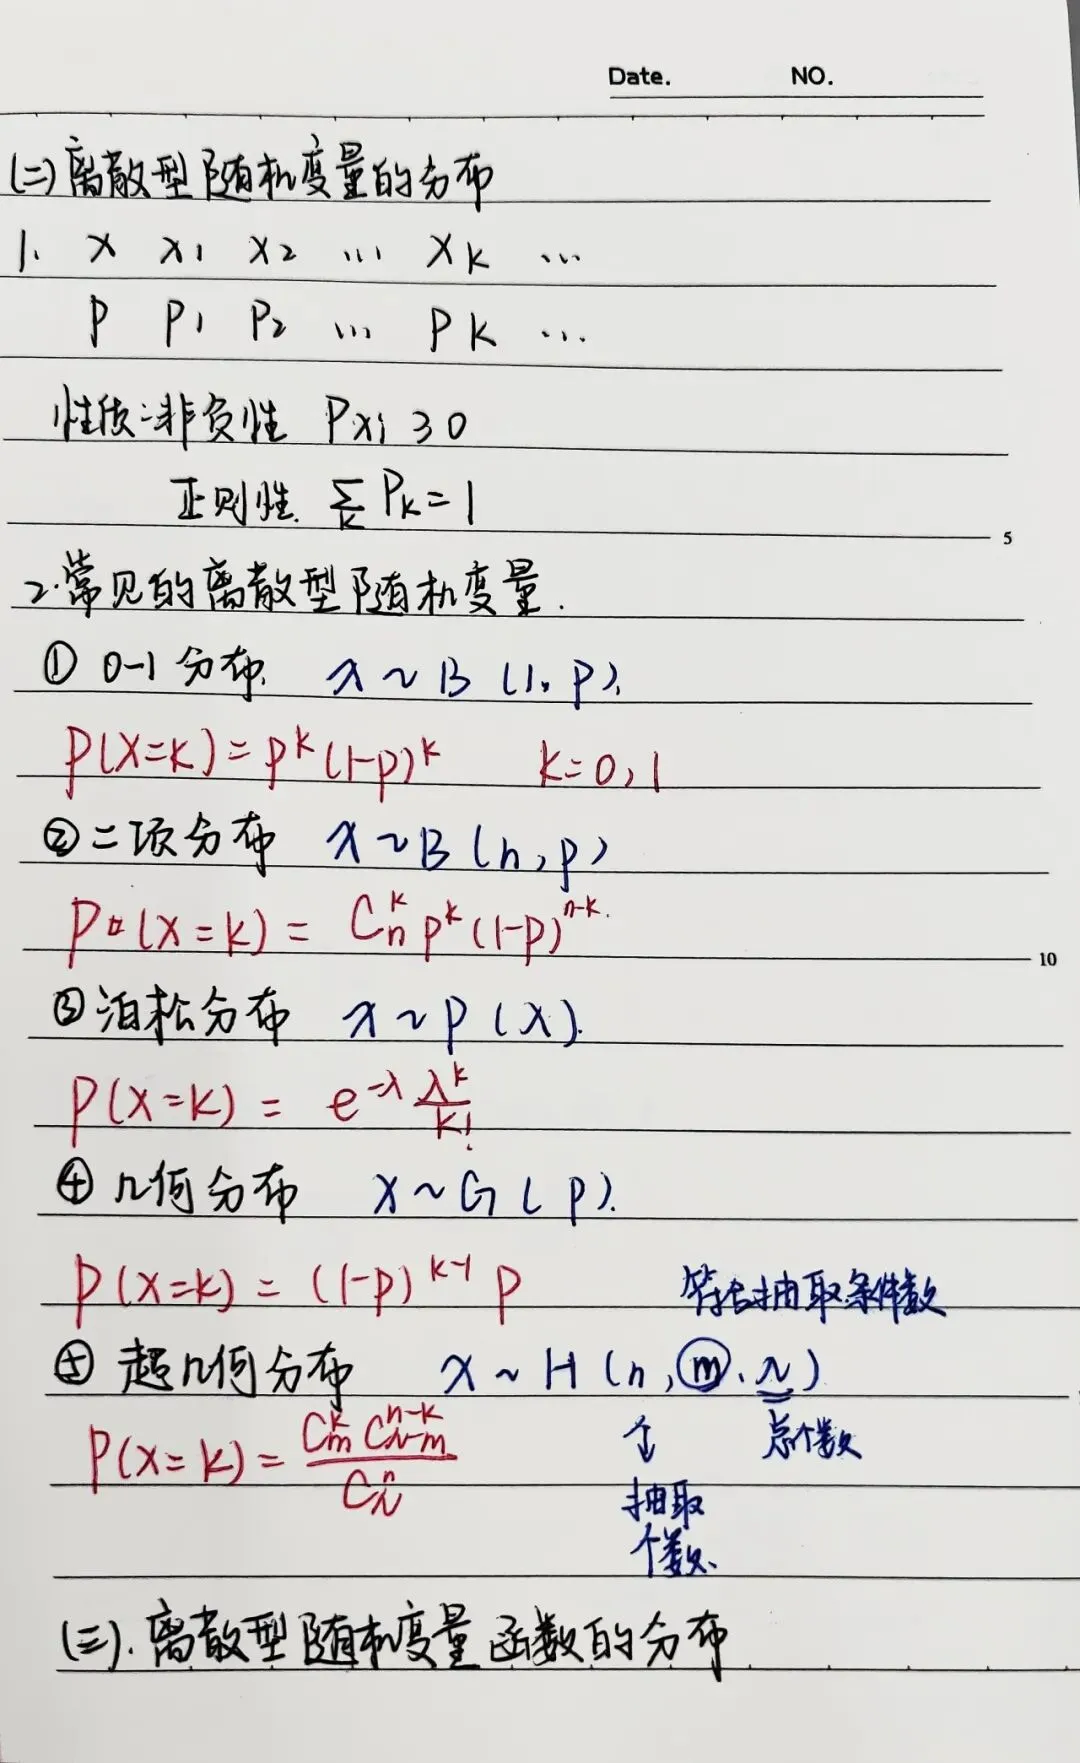 Date. NO.
(二)离散型随机变量的分布
1. X x1 x2 … xk …
P P1 P2 … Pk …
性质:非负性 Pxi ≥ 0
正则性. Σk Pk = 1
5
2.常见的离散型随机变量.
① 0-1分布. X ~ B (1, p).
P(X=k) = p^k (1-p)^k k=0,1
②二项分布 X ~ B (n, p)
P(X=k) = C_n^k p^k (1-p)^{n-k}.
10
③泊松分布 X ~ P (λ).
P(X=k) = e^{-λ} λ^k/k!
④几何分布 X ~ G (p).
P(X=k) = (1-p)^{k-1} p
符合抽取条件数
⑤超几何分布 X ~ H (n, m, N)
P(X=k) = C_m^k C_{N-m}^{n-k} / C_N^n
↓ 总个数
抽取
个数.
(三).离散型随机变量函数的分布